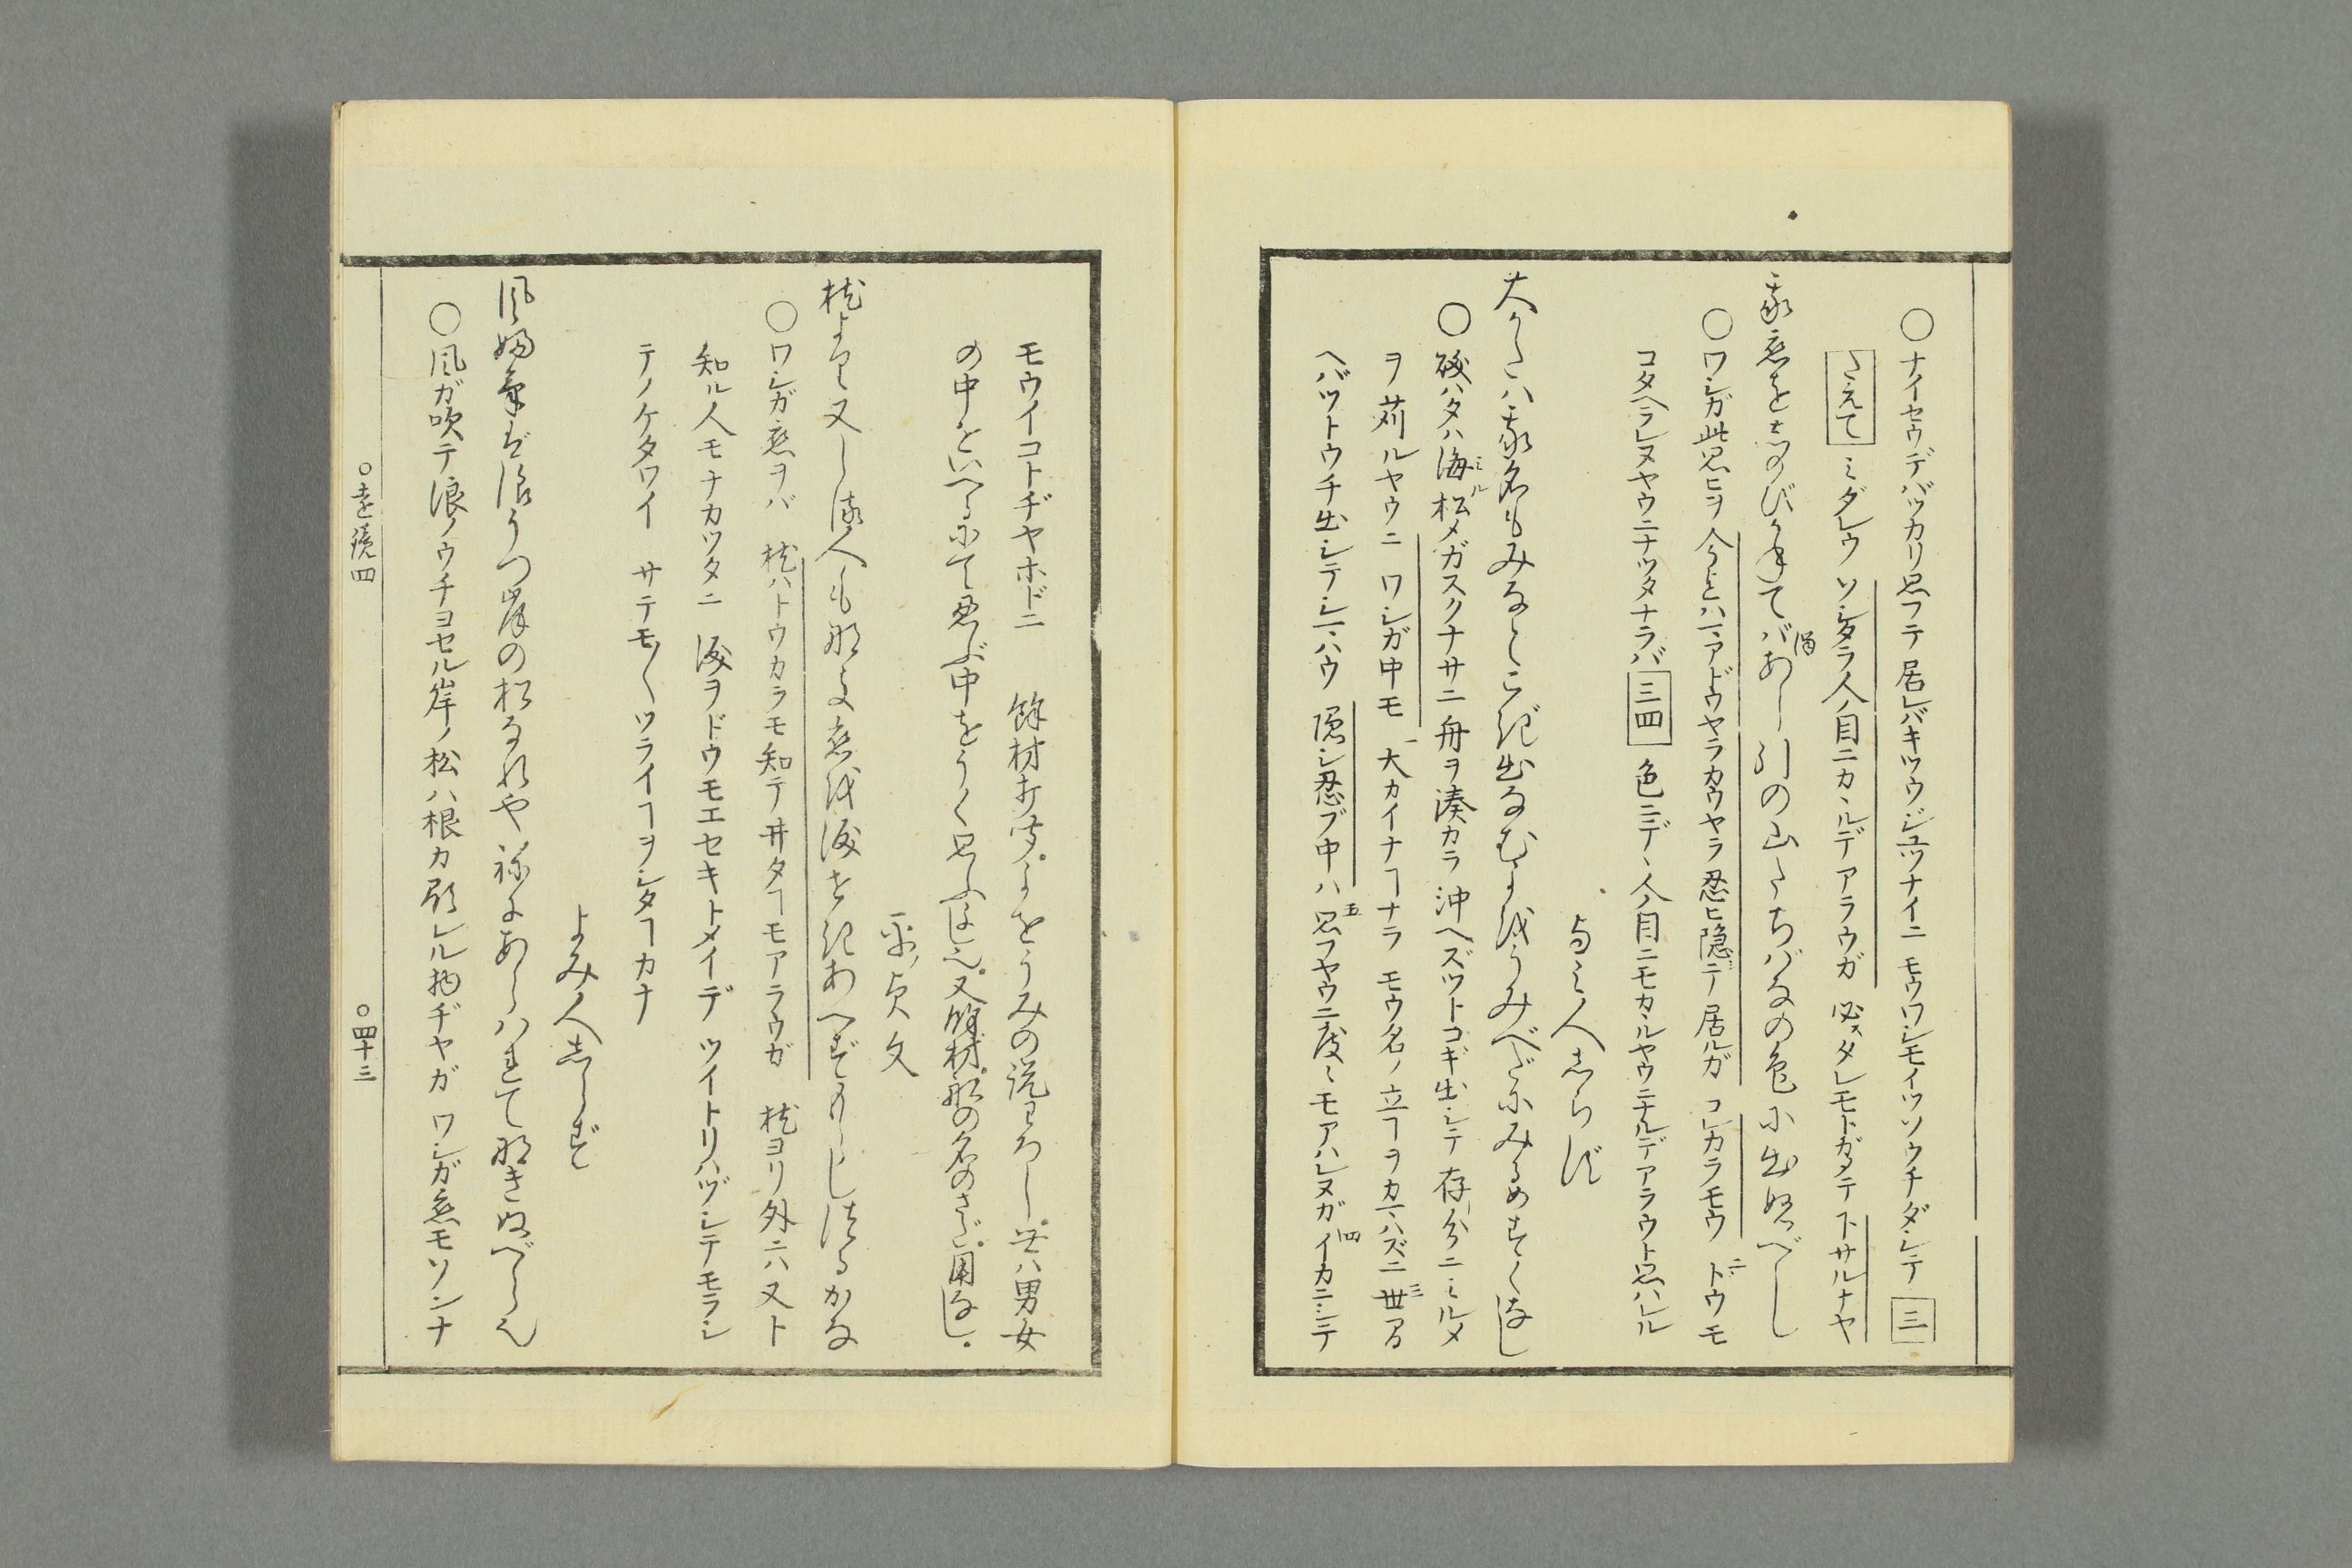 ○ナイセウデバッカリ思フテ居レバキツウジュツナイニ モウワシモイツソウチダシテ 三
たえて ミダレウ ソシタラ人ノ目ニカヽルデアラウガ 必スタレモトガメテ下サルナヤ
我恋をしのびかねてバあし引の山たちばなの色に出ぬべし
○ワシガ此思ヒヲ 今まとハ一アドウヤラカウヤラ忍ヒ隠テ居ルガ コレカラモウ 二ドウモ
コタヘラレヌヤウニナツタナラバ 三四 色ニデヽ人ノ目ニモカヽルヤウニナルデアラウト思ハルル
よミ人しらず
大かたハ我名もみなとこぎ出なむよをうみべたにみるめすくなし
○磯バタハ海松メガスクナサニ 舟ヲ湊カラ 沖ヘズツトコギ出シテ 存分ニミルメ
ミル
ヲ苅ルヤウニ ワシガ中モ 一大カイナヿナラ モウ名ノ立ヿヲカマハズニ 三世間
ヘバツトウチ出シテシマハウ 隠シ忍ブ中ハ 五思フヤウニ度々モアハレヌガ 四イカニシテ
モウイコトヂヤホドニ 餘材打聞。よをうみの説わろし。世ハ男女
の中をいへるにて忍ぶ中をうく思ふよし也。又餘材。船の名のさだ。用なし。
平貞文
枕より又しる人もなき恋を涙せきあへずもらしつるかな
○ワシガ恋ヲバ 枕ハトウカラモ知テ井タヿモアラウガ 枕ヨリ外ニハ又ト
知ル人モナカツタニ 涙ヲドウモエセキトメイデ ツイトリハヅシテモラシ
テノケタワイ サテモ〳〵ツライヿヲシタヿカナ
よみ人しらず
風ふけば浪うつ岸の松なれやねにあらハれてなきぬべら也
○風ガ吹テ浪ノウチヨセル岸ノ松ハ根カ顕レル物ヂヤガ ワシガ恋モソンナ
○遠鏡四
○四十三